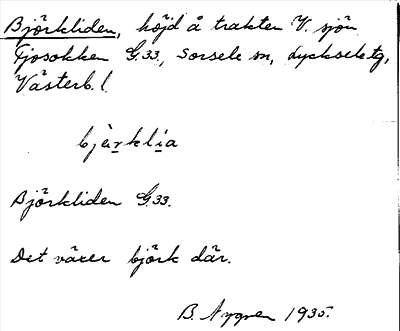 Björkliden, höjd å trakten V. sjön
Fjosokken G.33., Sorsele sn, Lycksele tg,
Västerb. l.
bjèrklia
Björkliden G.33.
Det växer björk där.
B. Nygren 1935.